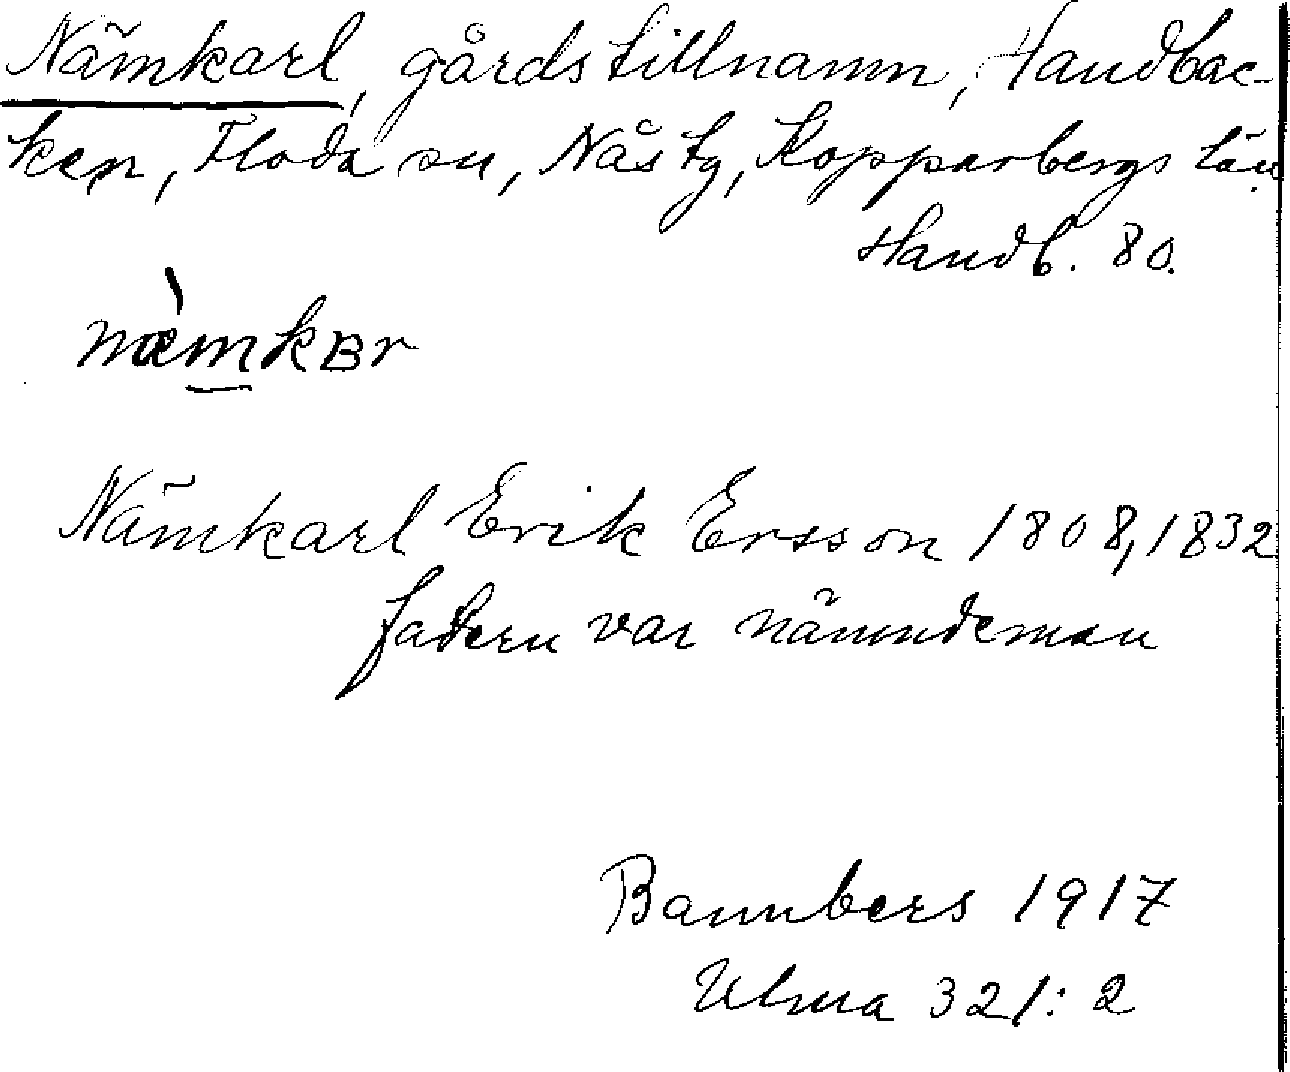 Nämkarl, gårdstillnamn, Handbac-
ken, Floda sn, Nås tg, Kopparbergs län
Handb. 80.
næ̀mkBr
Nämkarl Erik Ersson 1808, 1832
fadern var nämndeman
Bannbers 1917
Ulma 321:2